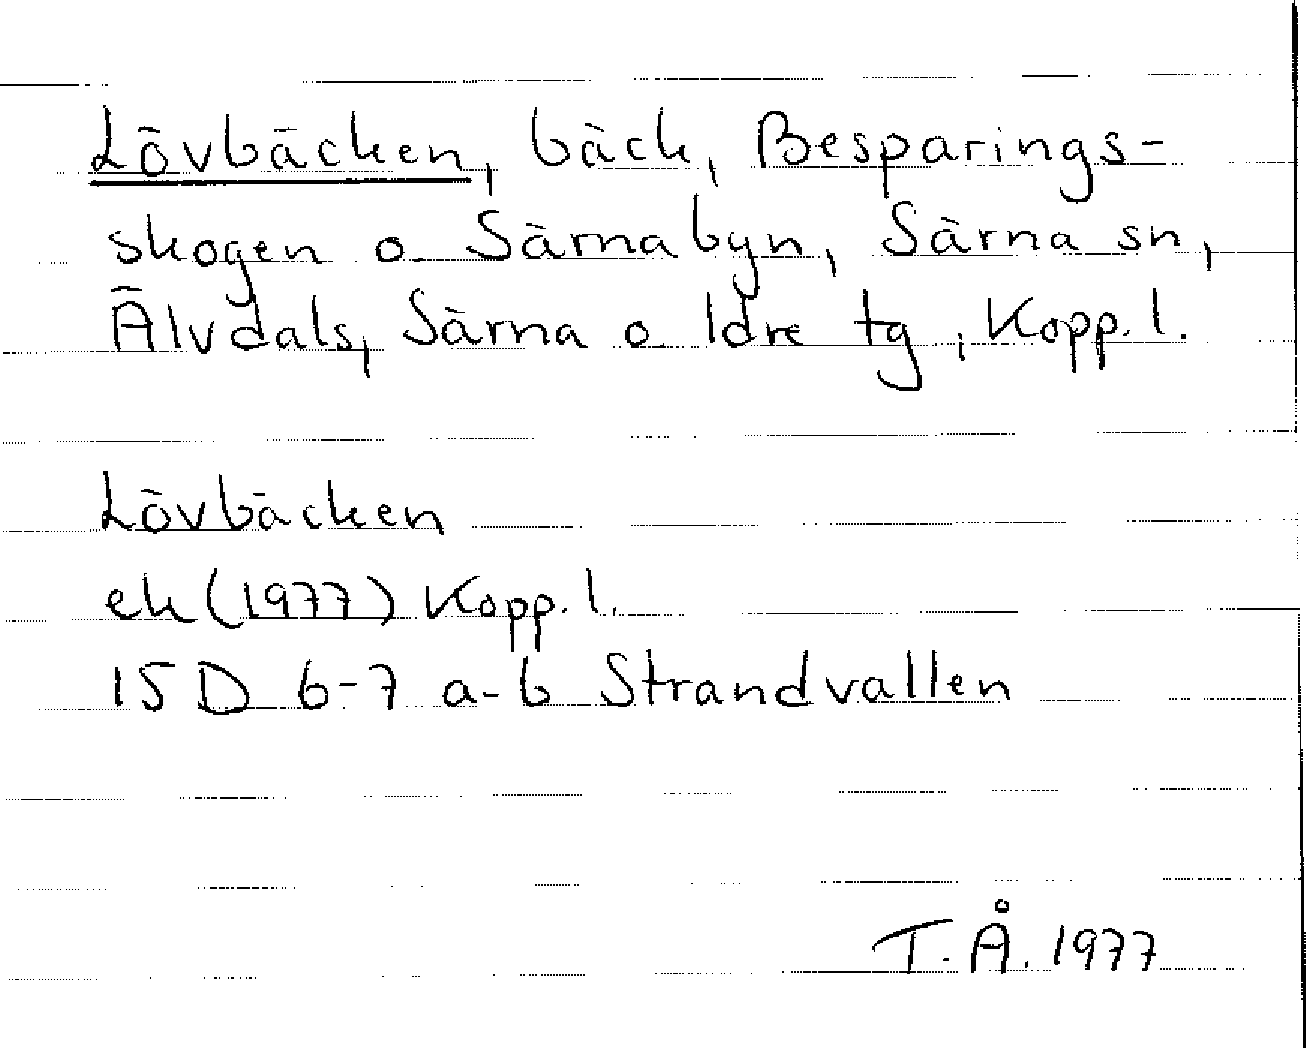 Lövbäcken, bäck, Besparings-
skogen o Särnabyn, Särna sn,
Älvdals, Särna o Idre tg, Kopp. l.
Lövbäcken
ek (1977) Kopp. l.
15 D 6-7 a-b Strandvallen
T.Å. 1977